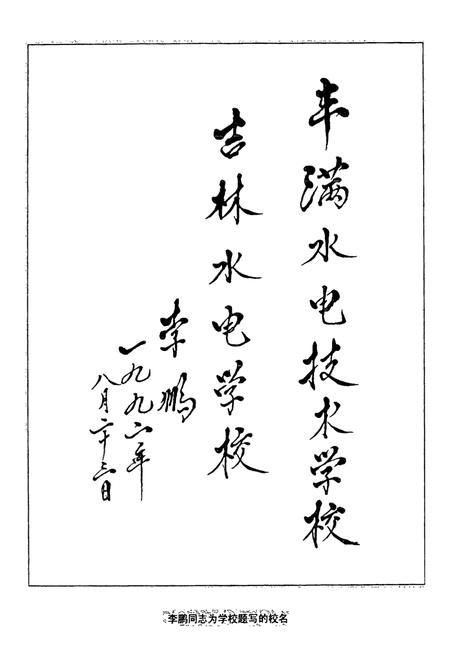 丰满水电技术学校
吉林水电学校
李鹏
一九九六年
八月二十三日
李鹏同志为学校题写的校名